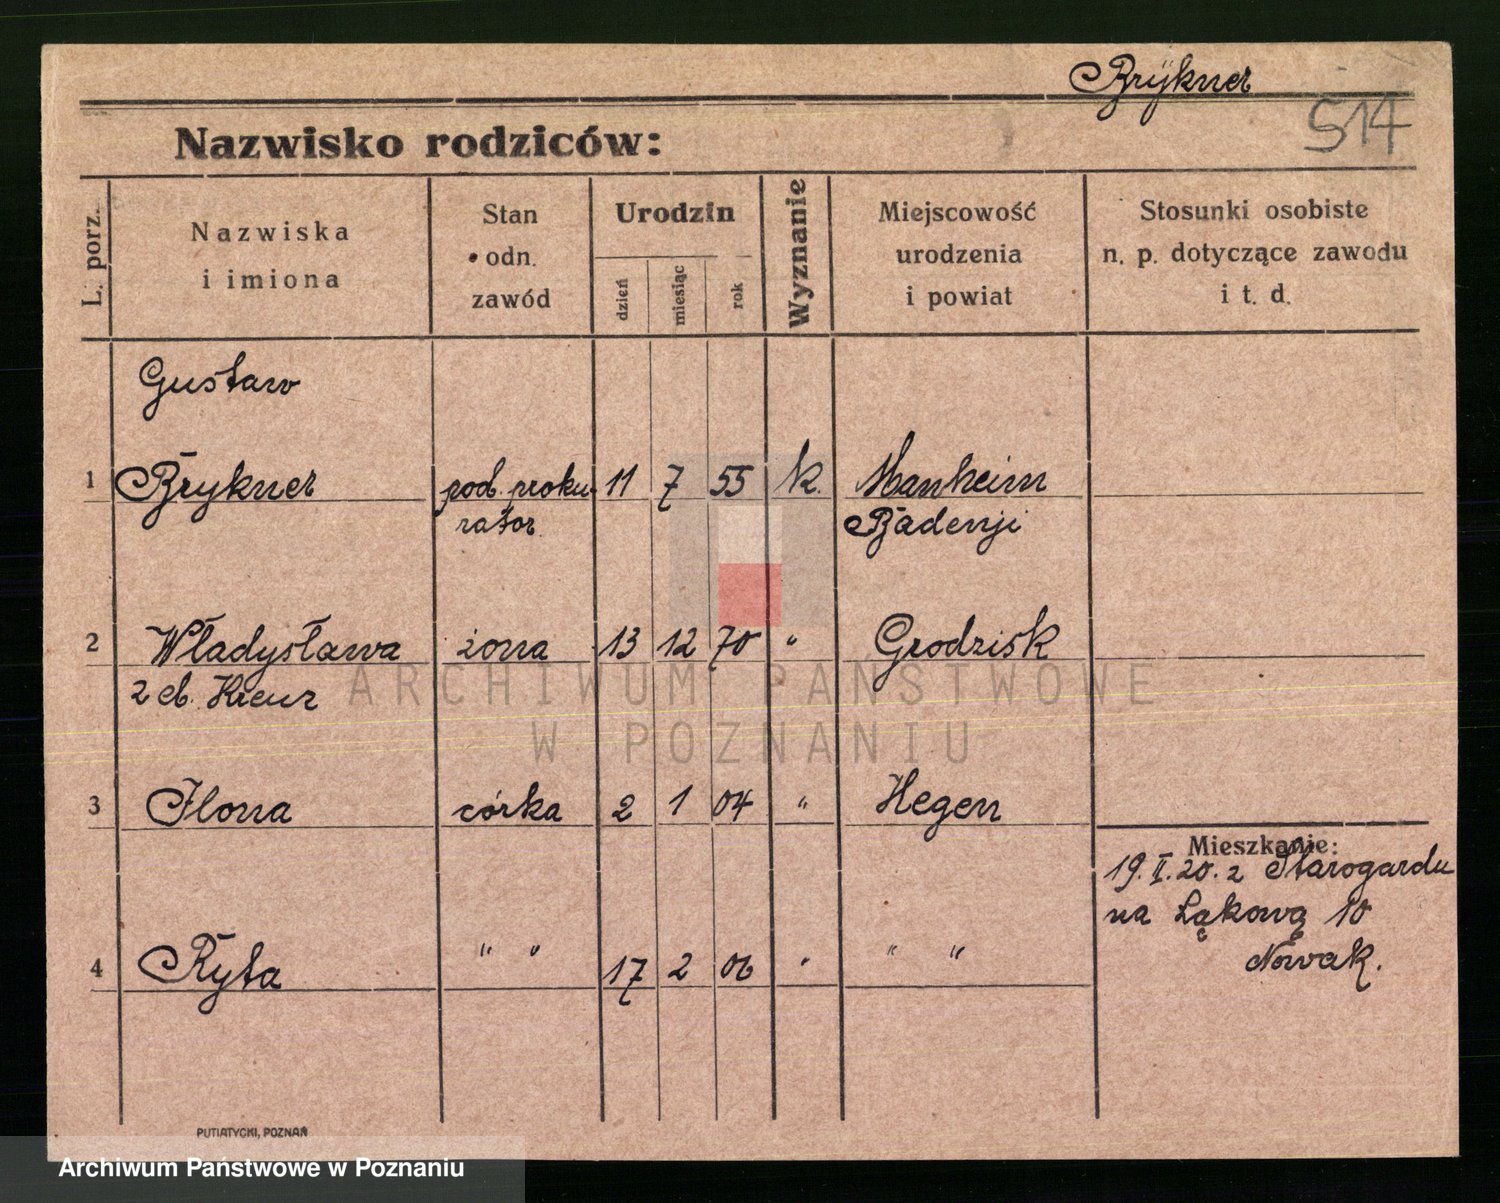 Brÿkner
514
Nazwisko rodziców:
L. porz.
Nazwiska
i imiona
Stan
odn.
zawód
Urodzin
dzień
miesiąc
rok
Wyznanie
Miejscowość
urodzenia
i powiat
Stosunki osobiste
n. p. dotyczące zawodu
i t. d.
Gustaw
1 Brykner pod. proku- 11 7 55 k. Manheim
rator Badenji
2 Władysława żona 13 12 70 " Grodzisk
ARCHIWUM PAŃSTWOWE
W POZNANIU
3 Ilona córka 2 1 04 " Hegen
Mieszkanie:
19. II. 20. z Starogardu
na Łąkową 10
Nowak.
4 Ryta " " 17 2 06 " " "
PUTIATYCKI, POZNAŃ
Archiwum Państwowe w Poznaniu